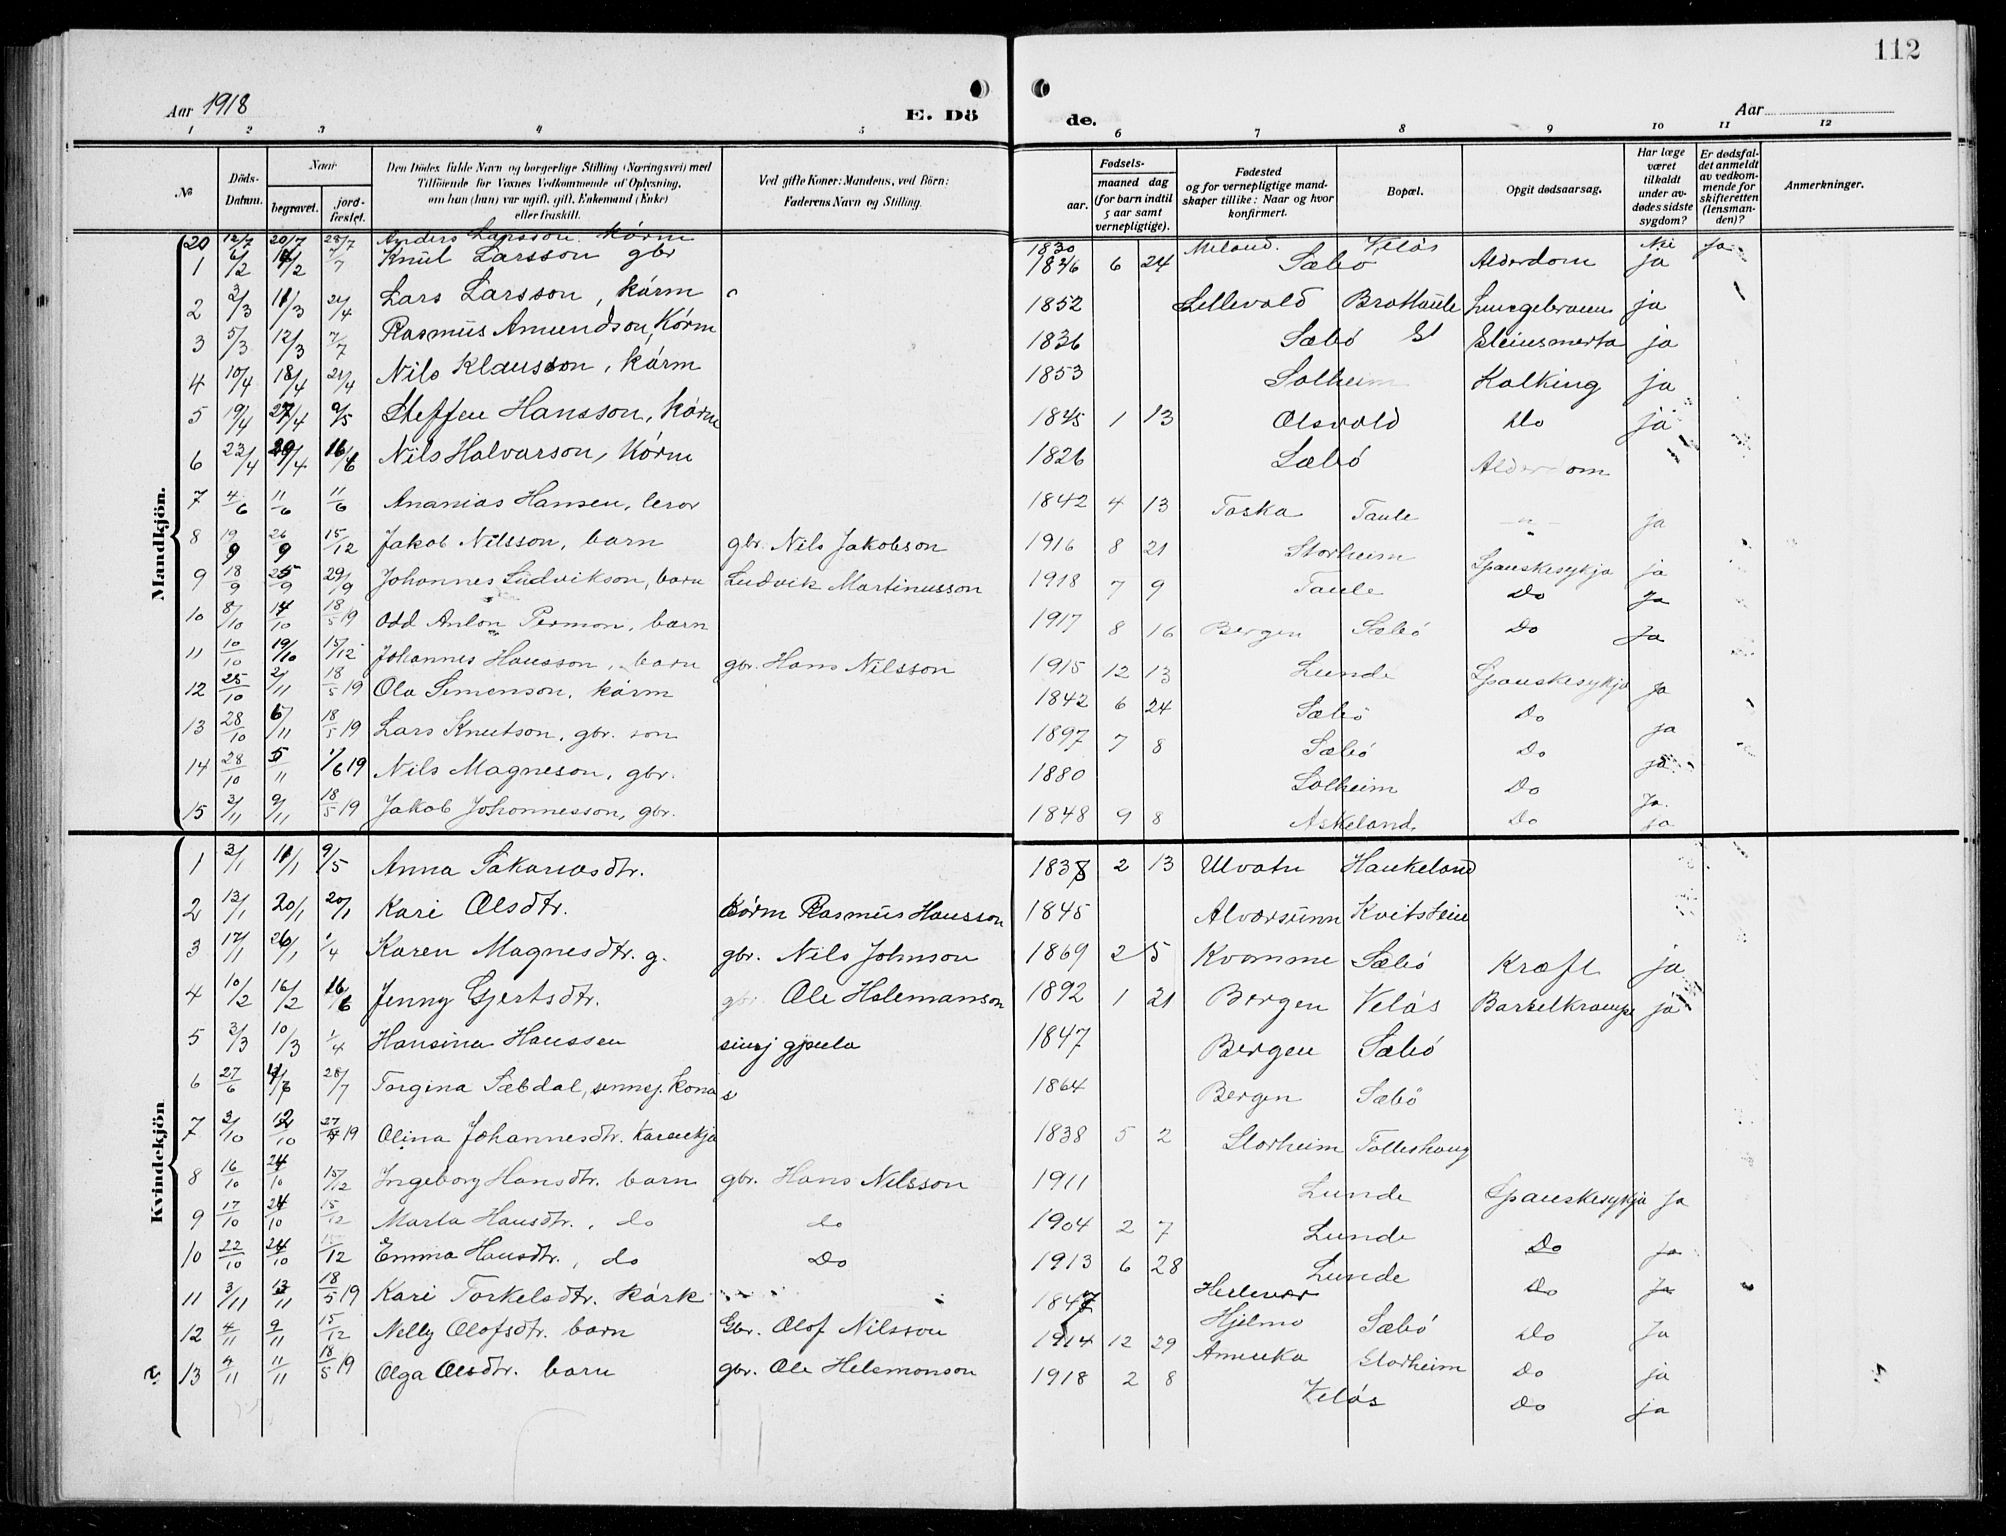 112
Aar 1918
E. Dö de.
Aar
1 2 3 4 5 6 7 8 9 10 11 12
No
Döds-Datum.
Naar
begravet.
jord-fæstet.
Den Dödes fulde Navn og borgerlige Stilling (Næringsvei) med Tilföiende for Voxnes Vedkommende af Oplysning, om han (hun) var ugift, gift, Enkemand (Enke) eller fraskilt.
Ved gifte Koner: Mandens, ved Börn: Faderens Navn og Stilling.
Fødsels-
aar.
maaned dag
(for barn indtil 5 aar samt vernepligtige).
Fødested og for vernepligtige mandskaper tillike: Naar og hvor konfirmert.
Bopæl.
Opgit dødsaarsag.
Har læge været tilkaldt under avdødes sidste sygdom?
Er dødsfaldet anmeldt av vedkommende for skifteretten (lensmanden)?
Anmerkninger.
Mandkjön.
20 12/7 20/7 28/7 Anders Larsson kårm 1830 Meland. Velås Nei Ja
1 6/2 14/2 7/7 Knut Larsson gbr 1846 6 24 Sæbö Alderdom ja
2 3/3 11/3 21/4 Lars Larsson, kårm 1852 Lillevold Brottaule Lungebrann ja
3 5/3 12/3 7/7 Rasmus Amundson, Kårm 1836 Sæbö Steinsmerta ja
4 10/4 18/4 21/4 Nils Klausson, kårm 1853 Solheim Kolking ja
5 19/4 27/4 9/5 Steffen Hansson, kårm 1845 1 13 Olsvold Do ja
6 23/4 29/4 16/6 Nils Halvarson, Kårm 1826 Sæbö Alderdom
7 4/6 11/6 11/6 Ananias Hansen, lerar 1842 4 13 Toska Taule -"- ja
8 19/9 26/9 15/12 Jakob Nilsson, barn gbr. Nils Jakobson 1916 8 21 Storheim Spanskesykja ja
9 18/9 25/9 29/9 Johannes Ludvikson, barn Ludvik Martinusson 1918 7 9 Taule Do Ja
10 8/10 14/10 18/5 19 Odd Anton Permon, barn 1917 8 16 Bergen Sæbö Do Ja
11 10/10 19/10 15/12 Johannes Hansson, barn gbr. Hans Nilsson 1915 12 13 Lunde Spanskesykja ja
12 25/10 2/11 18/5 19 Ola Simonson, kårm 1842 6 24 Sæbö Do ja
13 28/10 6/11 18/5 19 Lars Knutson, gbr. son 1897 7 8 Sæbö Do ja
14 28/10 5/11 1/6 19 Nils Magneson, gbr. 1880 Solheim Do Ja
15 3/11 9/11 18/5 19 Jakob Johannesson, gbr. 1848 9 8 Askeland Do ja
Kvindekjön
1 3/1 11/1 9/5 Anna Sakariasdtr. 1838 2 13 Ulvatn Haukeland
2 13/1 20/1 20/1 Kari Olsdtr. kårm Rasmus Hansson 1845 Alversunn Kvitstein
3 17/1 26/1 1/4 Karen Magnesdtr. g. gbr. Nils Johnson 1869 2 5 Kvamme Sæbö Kræft ja
4 10/2 16/2 16/6 Jenny Gjertsdtr. gbr Ole Helemanson 1892 1 21 Bergen Velås Barselkrampe ja
5 3/3 10/3 1/4 Hansina Hanssen sinsj gjenta 1847 Bergen Sæbö
6 27/6 4/7 28/7 Torgina Sæbdal, sinnsj. Kona 1864 Bergen Sæbö
7 3/10 12/10 27/4 19 Olina Johannesdtr. Kårenkja 1838 5 2 Storheim Tolleshaug
8 16/10 24/10 15/12 Ingeborg Hansdtr. barn gbr. Hans Nilsson 1911 Lunde Spanskesykja Ja
9 17/10 24/10 15/12 Marta Hansdtr., do do 1904 2 7 Lunde Do ja
10 22/10 24/10 15/12 Emma Hansdtr., do Do 1913 6 28 Lunde Do Ja
11 3/11 13/11 18/5 19 Kari Torkelsdtr. kårk 1847 Hjelmo Sæbö Do Ja
12 4/11 9/11 15/12 Nelly Olofsdtr. barn Gbr. Olof Nilsson 1914 12 29 Amerika Storheim Do ja
13 4/11 11/11 18/5 19 Olga Olsdtr. barn gbr. Ole Helemonson 1918 2 8 Velås Do ja